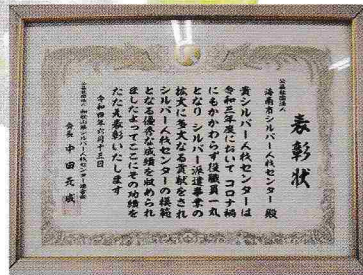 表彰状
公益社団法人
海南市シルバー人材センター 殿
貴シルバー人材センターは
令和三年度において コロナ禍
にもかかわらず役職員一丸
となり シルバー派遣事業の
拡大に多大なる貢献をされ
シルバー人材センターの模範
となる優秀な成績を収められ
ましたよってここにその功績を
たたえ表彰いたします
令和四年六月十三日
公益社団法人 和歌山県シルバー人材センター連合会
会長 中田 充咸